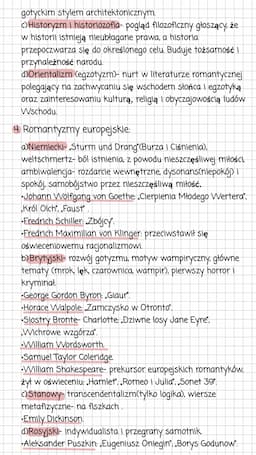 gotyckim stylem architektonicznym.
c)Historyzm i historiozofia- pogląd filozoficzny głoszący, że
w historii istnieją nieubłagane prawa, a historia
przepoczwarza się do określonego celu. Buduje tożsamość i
przynależność narodu.
d)Orientalizm (egzotyzm)- nurt w literaturze romantycznej
polegający na zachwycaniu się wschodem słońca i egzotyką
oraz zainteresowaniu kulturą, religią i obyczajowością ludów
Wschodu.
4. Romantyzmy europejskie:
a)Niemiecki- „Sturm und Drang"(Burza i Ciśnienia),
weltschmertz- ból istnienia, z powodu nieszczęśliwej miłości,
ambiwalencja- rozdarcie wewnętrzne, dysonans(niepokój) i
spokój, samobójstwo przez nieszczęśliwą miłość,
•Johann Wolfgang von Goethe: „Cierpienia Młodego Wertera",
„Król Olch", „Faust" .
•Fredrich Schiller: „Zbójcy".
•Fredrich Maximilian von Klinger: przeciwstawił się
oświeceniowemu racjonalizmowi.
b)Brytyjski- rozwój gotyzmu, motyw wampiryczny, główne
tematy (mrok, lęk, czarownica, wampir), pierwszy horror i
kryminał.
•George Gordon Byron: „Giaur".
•Horace Walpole: „Zamczysko w Otronto".
•Siostry Bronte- Charlotte „Dziwne losy Jane Eyre",
„Wichrowe wzgórza".
•William Wordsworth.
•Samuel Taylor Coleridge.
•William Shakespeare- prekursor europejskich romantyków,
żył w oświeceniu: „Hamlet", „Romeo i Julia", „Sonet 39".
c)Stanowy- transcendentalizm(tylko logika), wiersze
metafizyczne- na fiszkach .
•Emily Dickinson.
d)Rosyjski- indywidualista i przegrany samotnik.
•Aleksander Puszkin: „Eugeniusz Oniegin", „Borys Godunow".